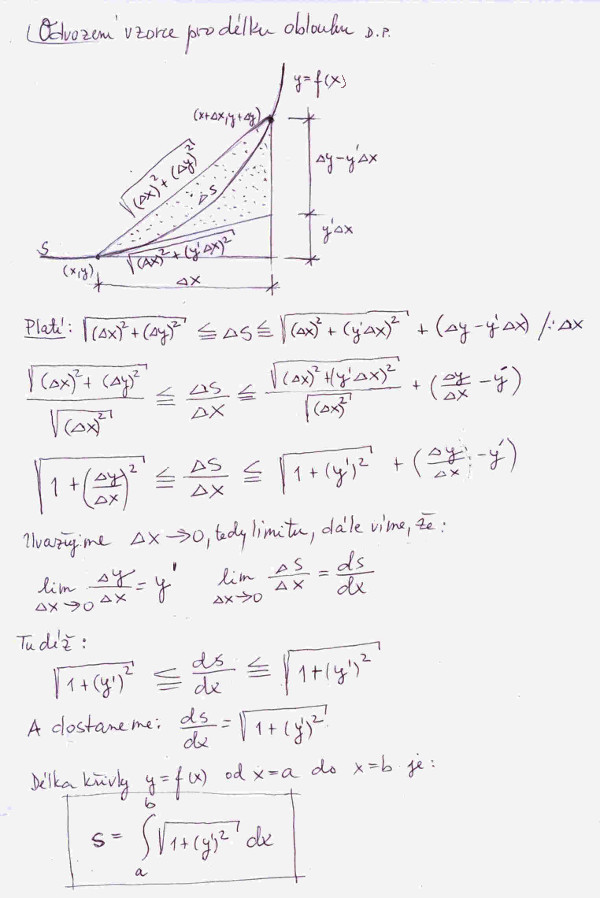 Odvození vzorce pro délku oblouku D.P.
y=f(x)
(x+Δx,y+Δy)
√((Δx)²+(Δy)²)
ΔS
Δy-y'Δx
y'Δx
S
(x,y)
√((Δx)²+(y'Δx)²)
Δx
Platí: √((Δx)²+(Δy)²) ≦ ΔS ≦ √((Δx)²+(y'Δx)²) + (Δy-y'Δx) /:Δx
√((Δx)²+(Δy)²)/√((Δx)²) ≦ ΔS/Δx ≦ √((Δx)²+(y'Δx)²)/√((Δx)²) + (Δy/Δx - y')
√(1+(Δy/Δx)²) ≦ ΔS/Δx ≦ √(1+(y')²) + (Δy/Δx - y')
Uvažujme Δx→0, tedy limitu, dále víme, že:
lim Δx→0 Δy/Δx = y' lim Δx→0 ΔS/Δx = ds/dx
Tudíž:
√(1+(y')²) ≦ ds/dx ≦ √(1+(y')²)
A dostaneme: ds/dx = √(1+(y')²)
Délka křivky y=f(x) od x=a do x=b je:
s = ∫ₐᵇ √(1+(y')²) dx